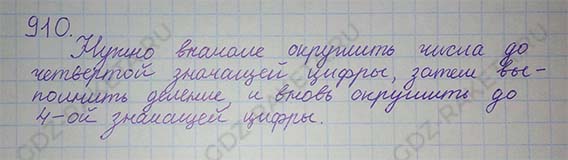 910.
Нужно вначале округлить числа до
четвертой значащей цифры, затем вы-
полнить деление, и вновь округлить до
4-ой значащей цифры.